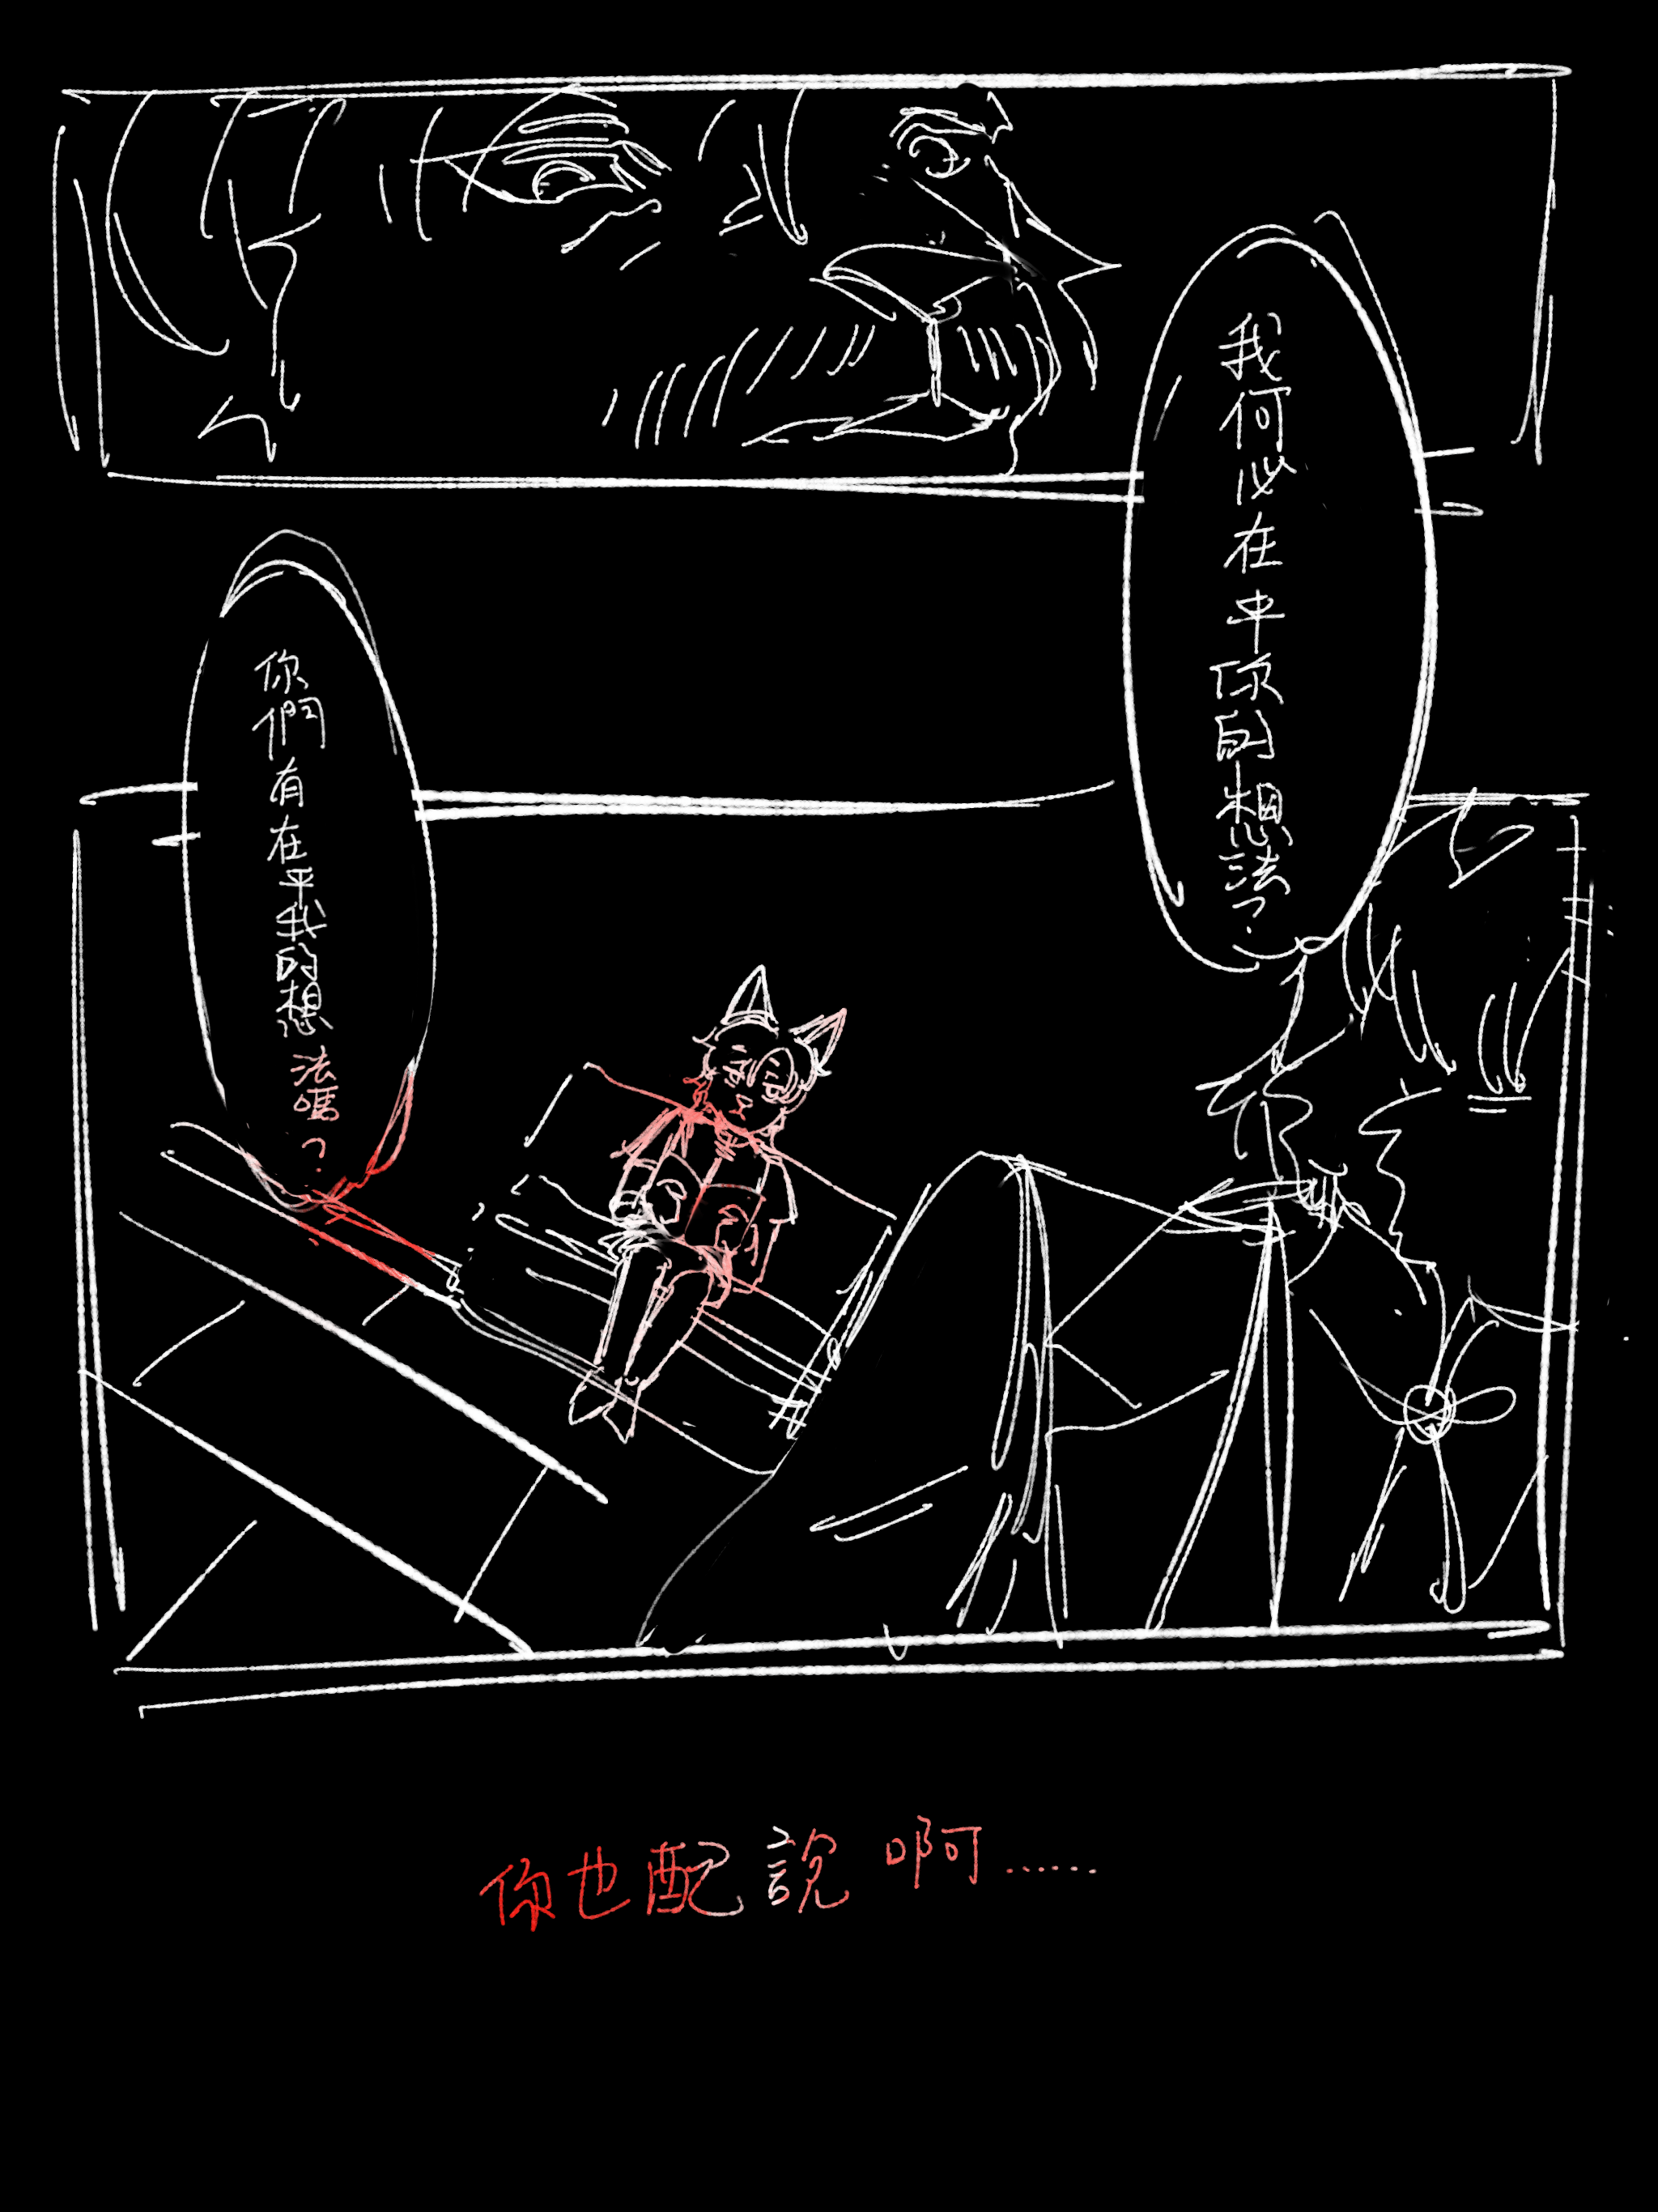 我何必在乎你的想法？
你們有在乎我的想法嗎？
你也配說啊……